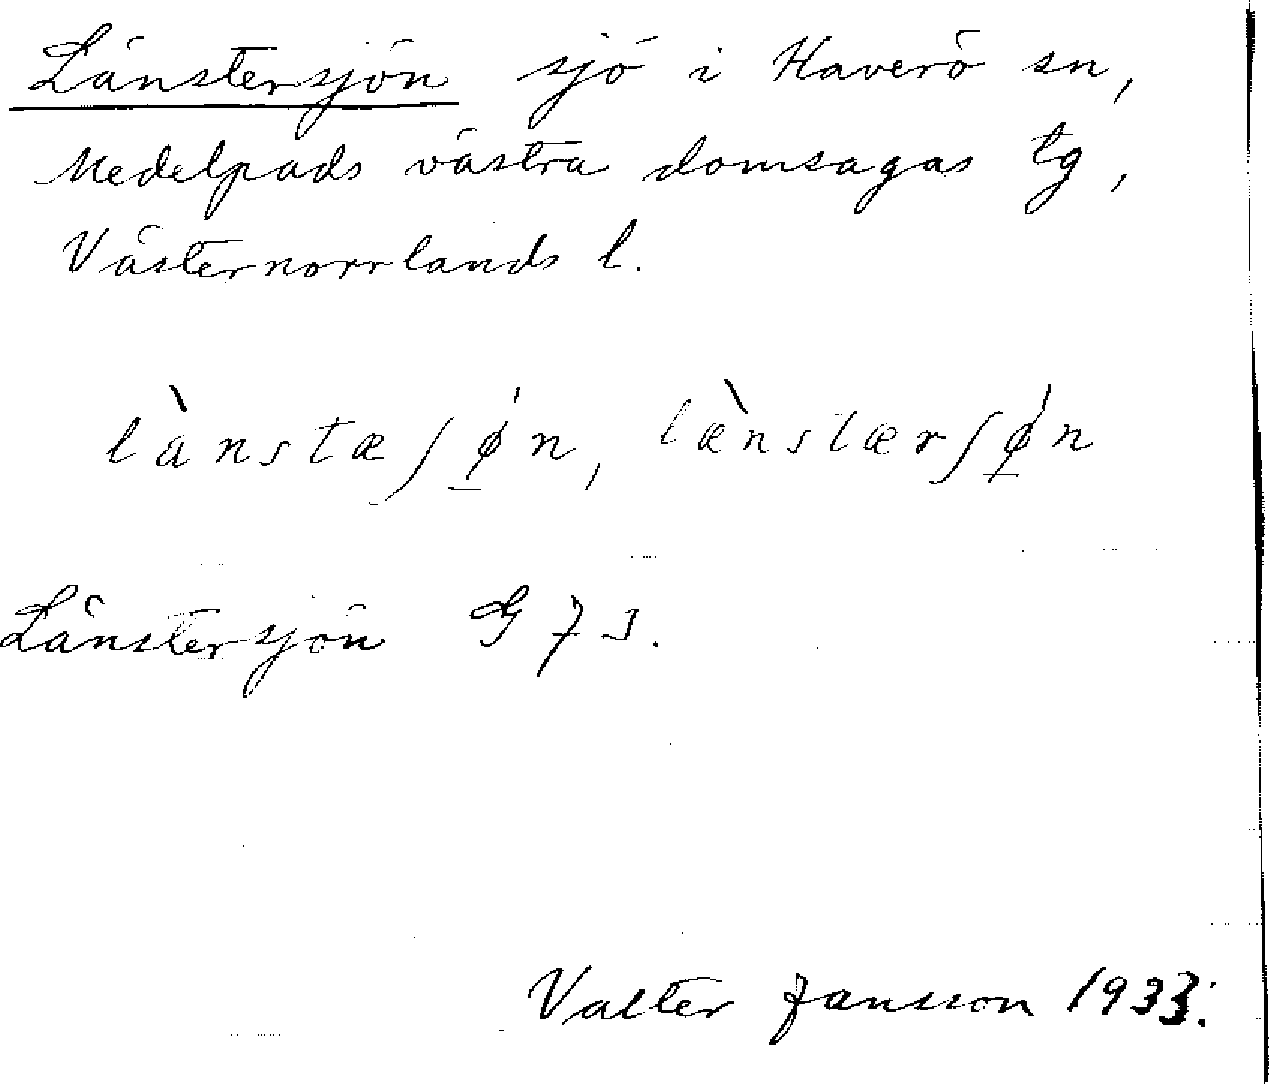 Länstersjön sjö i Haverö sn,
Medelpads västra domsagas tg,
Västernorrlands l.
lànstæʃǿ̱n, læ̀nstærʃǿ̱n
Länstersjön G 73.
Valter Jansson 1933.